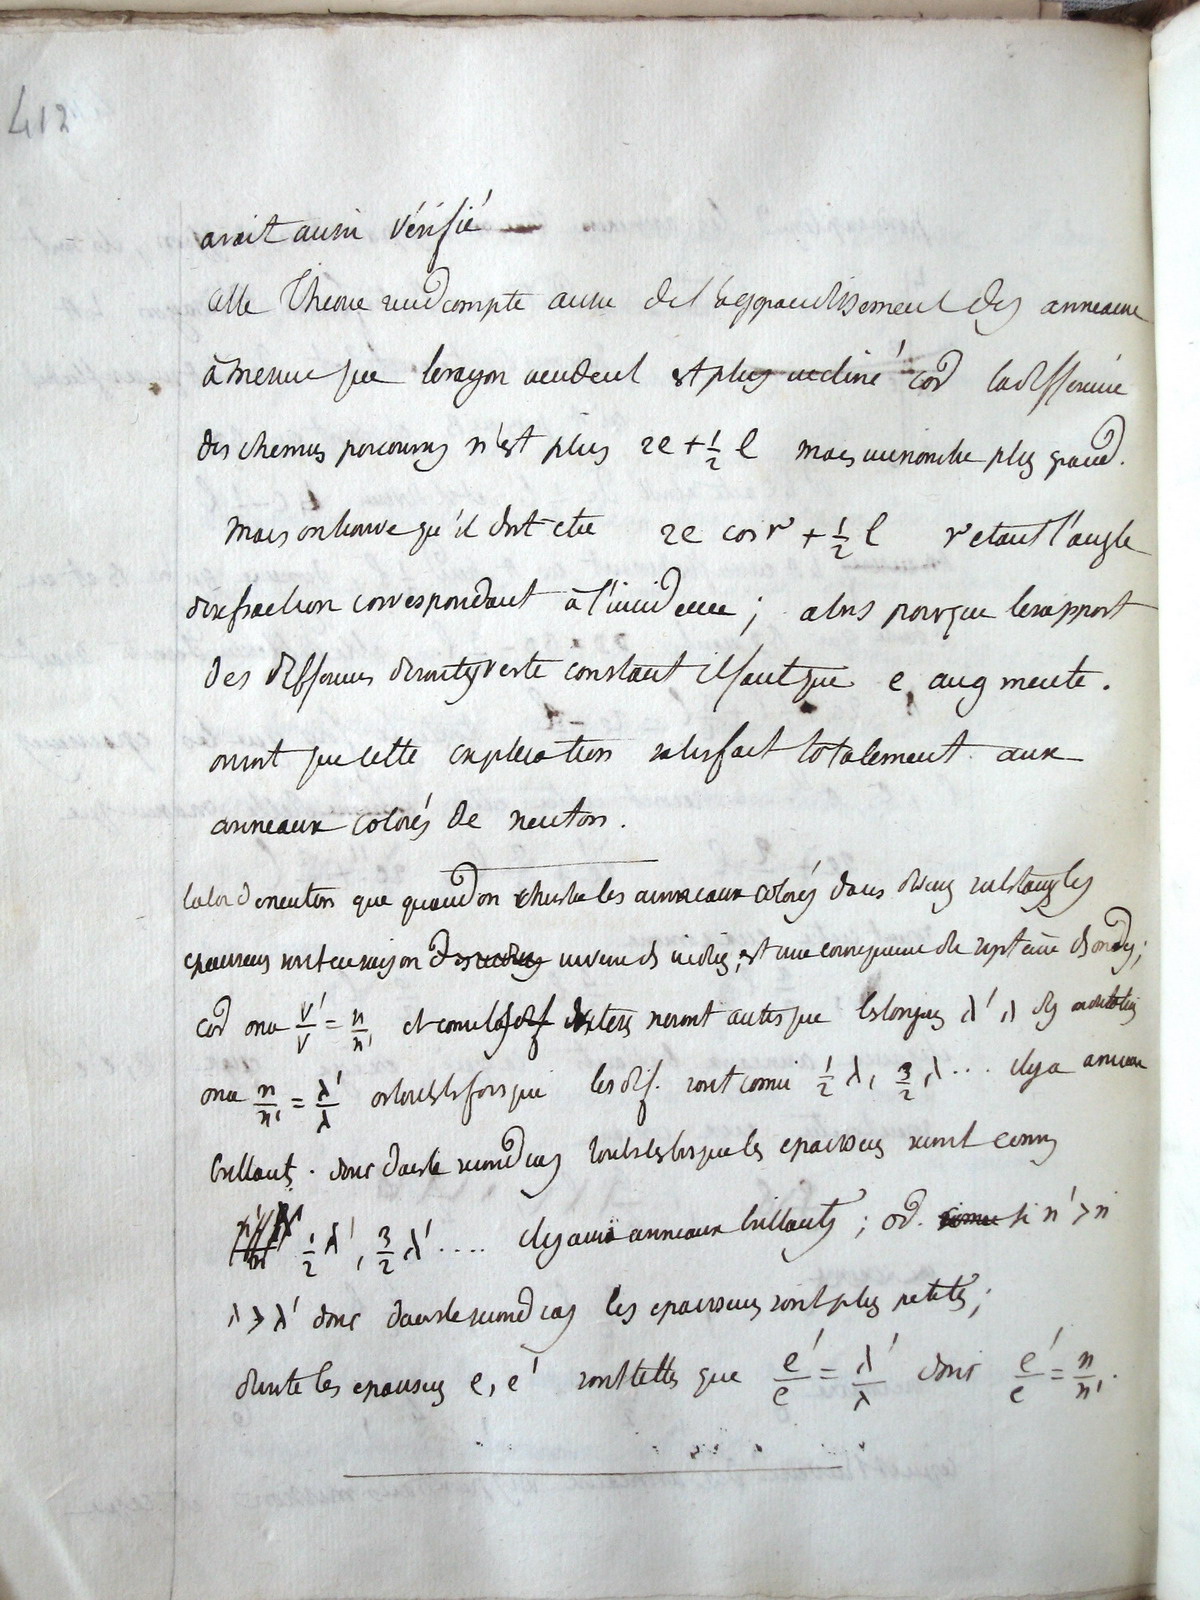 412
avait aussi vérifié
cette Théorie rend compte aussi de l'aggrandissement des anneaux
à mesure que le rayon incident est plus incliné car la différence
des chemins parcourus n'est plus 2e + 1/2 l mais un nombre plus grand.
Mais on trouve qu'il doit etre 2e cos r + 1/2 l r etant l'angle
de refraction correspondant à l'incidence ; alors pour que le rapport
des differences de routes reste constant il faut que e augmente.
on voit que cette explication satisfait totalement aux
anneaux colorés de neuton.
la loi de neuton que quand on observe les anneaux colorés dans diverses substances les
epaisseurs sont en raison inverse des indices, est une consequence du systeme des ondes ;
car on a v'/v = n/n' et comme les longueurs λ', λ des ondulations
on a n/n' = λ'/λ or toutes les fois que les dif. sont comme 1/2 λ, 3/2 λ... il y a anneau
brillant. donc dans le second cas toutes les fois que les epaisseurs seront comme
1/2 λ', 3/2 λ'.... il y aura anneaux brillants ; or. si n' > n
λ > λ' donc dans le second cas les epaisseurs sont plus petites ;
ensuite les epaisseurs e, e' sont telles que e'/e = λ'/λ donc e'/e = n/n'.